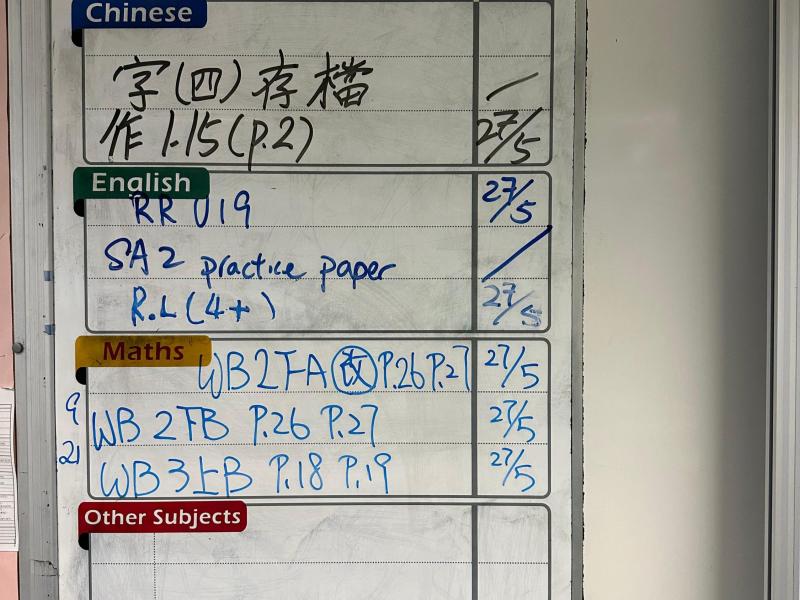 Chinese
字(四)存檔 /
作1.15(p.2) 27/5
English
RR U19 27/5
SA2 practice paper /
R.L(4+) 27/5
Maths
WB2下A 改 P.26 P.27 27/5
9 WB 2下B P.26 P.27 27/5
21 WB3上B P.18 P.19 27/5
Other Subjects